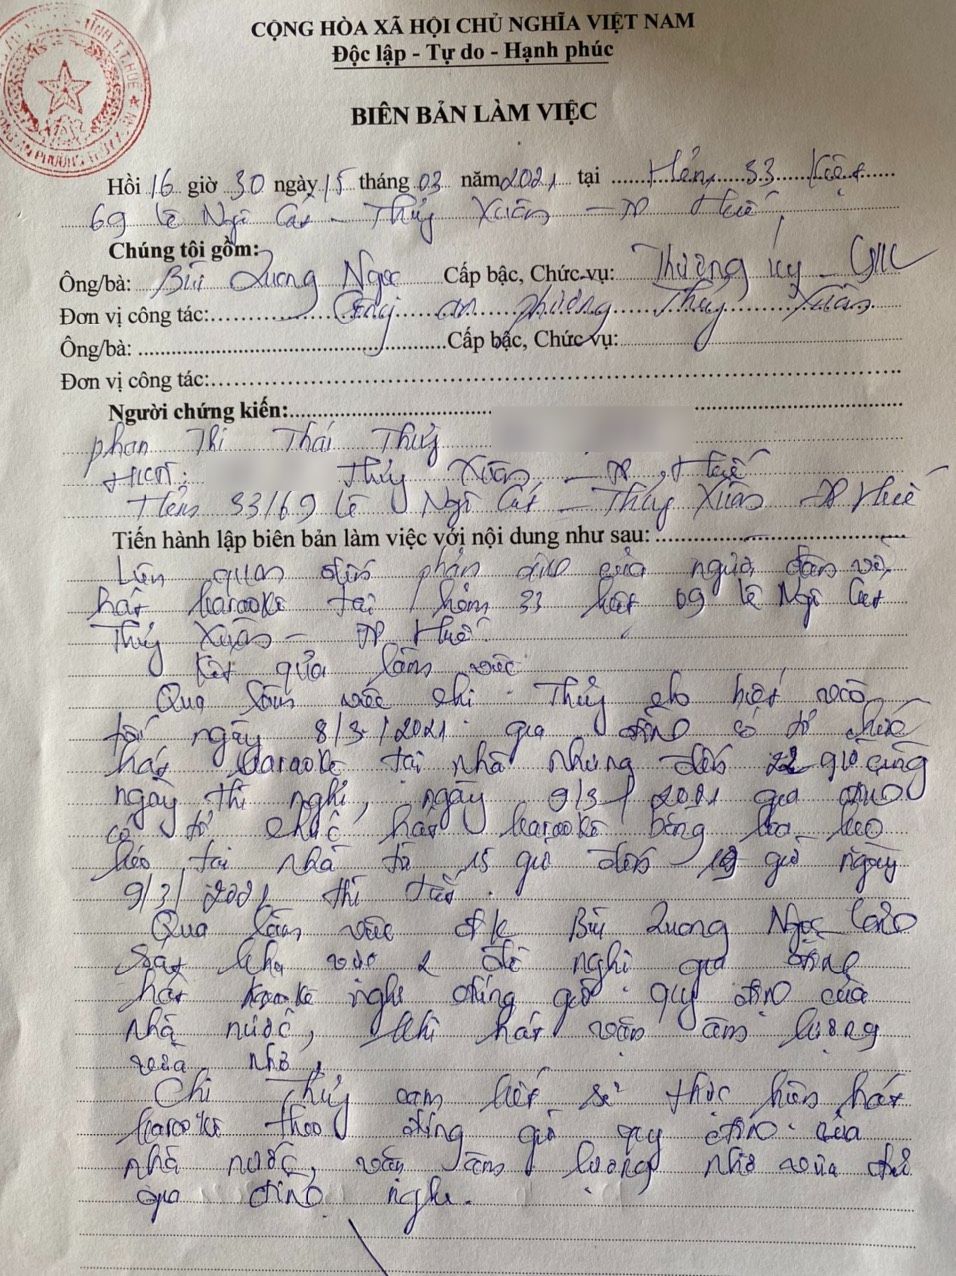 CỘNG HÒA XÃ HỘI CHỦ NGHĨA VIỆT NAM
Độc lập - Tự do - Hạnh phúc
BIÊN BẢN LÀM VIỆC
Hồi 16 giờ 30 ngày 15 tháng 03 năm 2021 tại Hẻm 33 Kiệt
69 Lê Ngô Cát - Thủy Xuân - TP Huế
Chúng tôi gồm:
Ông/bà: Bùi Quang Ngọc Cấp bậc, Chức vụ: Thượng úy -
Đơn vị công tác: Công an phường Thủy Xuân
Ông/bà: Cấp bậc, Chức vụ:
Đơn vị công tác:
Người chứng kiến:
Phan Thị Thái Thủy
HKTT: Thủy Xuân - TP Huế
Hẻm 33/69 Lê Ngô Cát - Thủy Xuân - TP Huế
Tiến hành lập biên bản làm việc với nội dung như sau:
Liên quan đến phản ánh của người dân về
hát karaoke tại hẻm 33 kiệt 69 Lê Ngô Cát
Thủy Xuân - TP Huế.
Kết quả làm việc
Qua làm việc chị Thủy cho biết vào
tối ngày 8/3/2021 gia đình có tổ chức
hát karaoke tại nhà nhưng đến 22 giờ cùng
ngày thì nghỉ, ngày 9/3/2021 gia đình
có tổ chức hát karaoke bằng loa kẹo
kéo tại nhà từ 15 giờ đến 19 giờ ngày
9/3/2021 thì tắt.
Qua làm việc đ/c Bùi Quang Ngọc Cảnh
sát khu vực 2 đề nghị gia đình
hát karaoke nghỉ đúng giờ quy định của
nhà nước, khi hát vặn âm lượng
vừa nhỏ.
Chị Thủy cam kết sẽ thực hiện hát
karaoke theo đúng giờ quy định của
nhà nước, vặn âm lượng nhỏ vừa đủ
gia đình nghe.